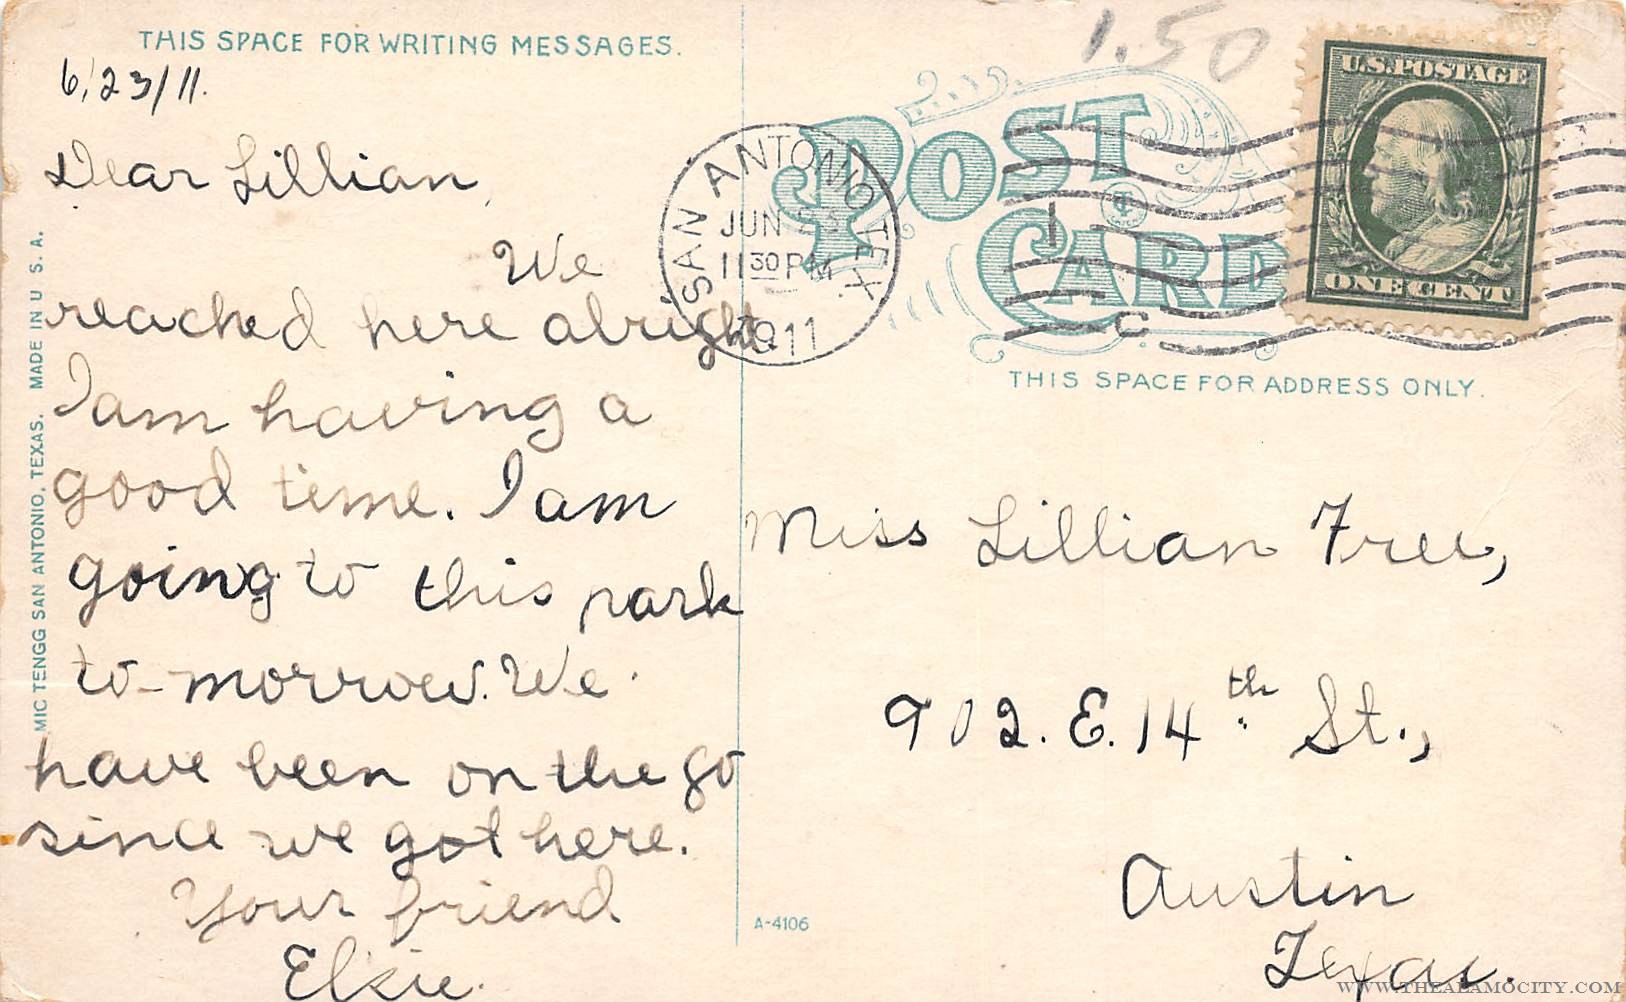 THIS SPACE FOR WRITING MESSAGES.
6/23/11.
Dear Lillian,
We
reached here alright.
I am having a
good time. I am
going to this park
to-morrow. We
have been on the go
since we got here.
Your friend
Elsie.
MIC TENGG SAN ANTONIO, TEXAS. MADE IN U. S. A.
1.50
U.S. POSTAGE
ONE CENT
POST CARD
SAN ANTONIO TEX.
JUN
11 30 PM
1911
1
C
THIS SPACE FOR ADDRESS ONLY.
Miss Lillian Free,
902. E. 14th St.,
Austin
Texas.
A-4106
WWW.THEALAMOCITY.COM